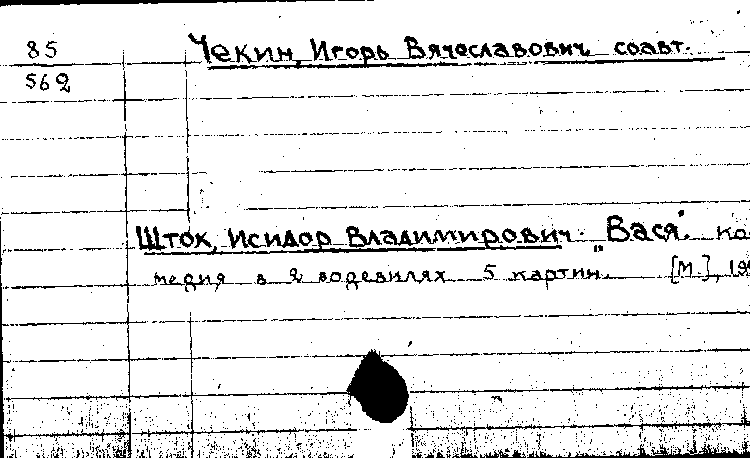 85 Чекин, Игорь Вячеславович соавт.
562
Шток, Исидор Владимирович. "Вася". Ко-
медия в 2 водевилях 5 картин. [М.], 19